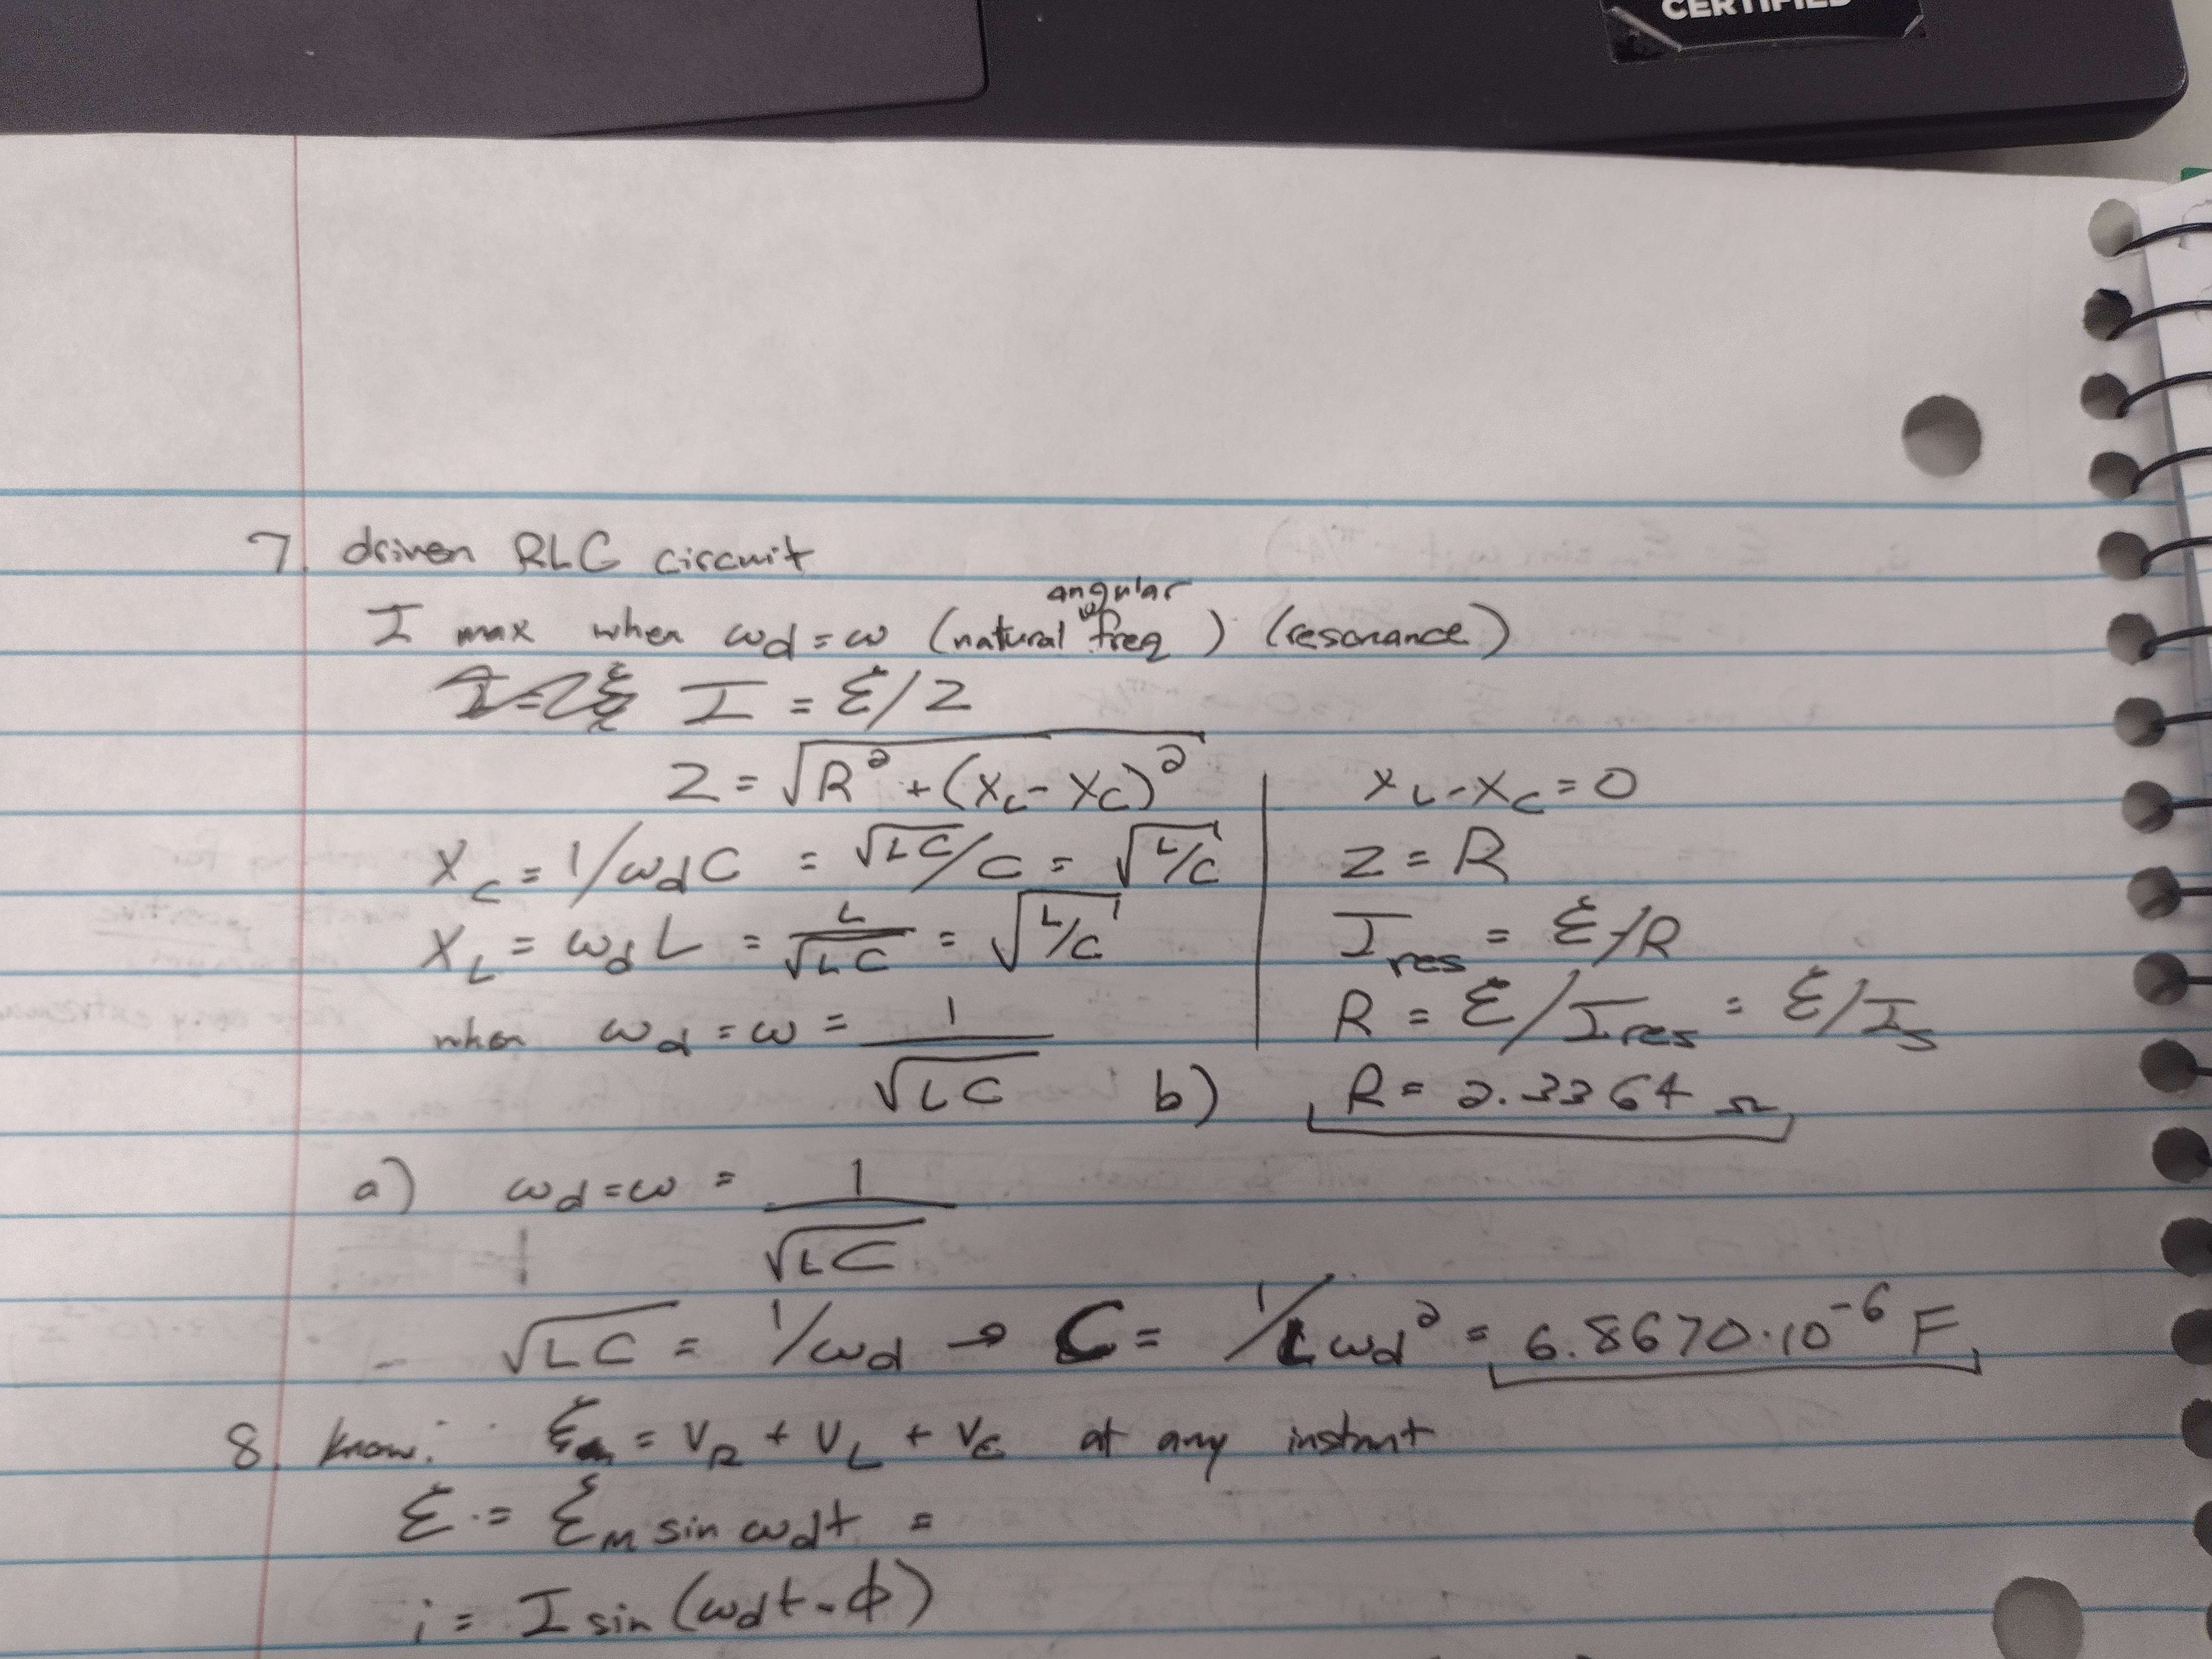 CERTIFIED
7. driven RLC circuit
angular
I max when ωd = ω (natural freq) (resonance)
I = ℰ/Z
Z = √(R² + (X_L - X_C)²)
X_C = 1/ωdC = √LC/C = √(L/C)
X_L = ωdL = L/√LC = √(L/C)
when ωd = ω = 1/√LC
X_L - X_C = 0
Z = R
I_res = ℰ/R
R = ℰ/I_res = ℰ/I_s
b) R = 2.3364 Ω
a) ωd = ω = 1/√LC
√LC = 1/ωd → C = 1/Lωd² = 6.8670·10⁻⁶ F
8. know: ℰ = V_R + V_L + V_C at any instant
ℰ = ℰ_m sin ωdt =
i = I sin(ωdt - ϕ)